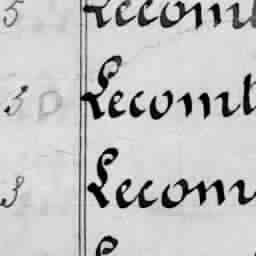 5 Lecomt
3 D Lecomt
3 Lecom